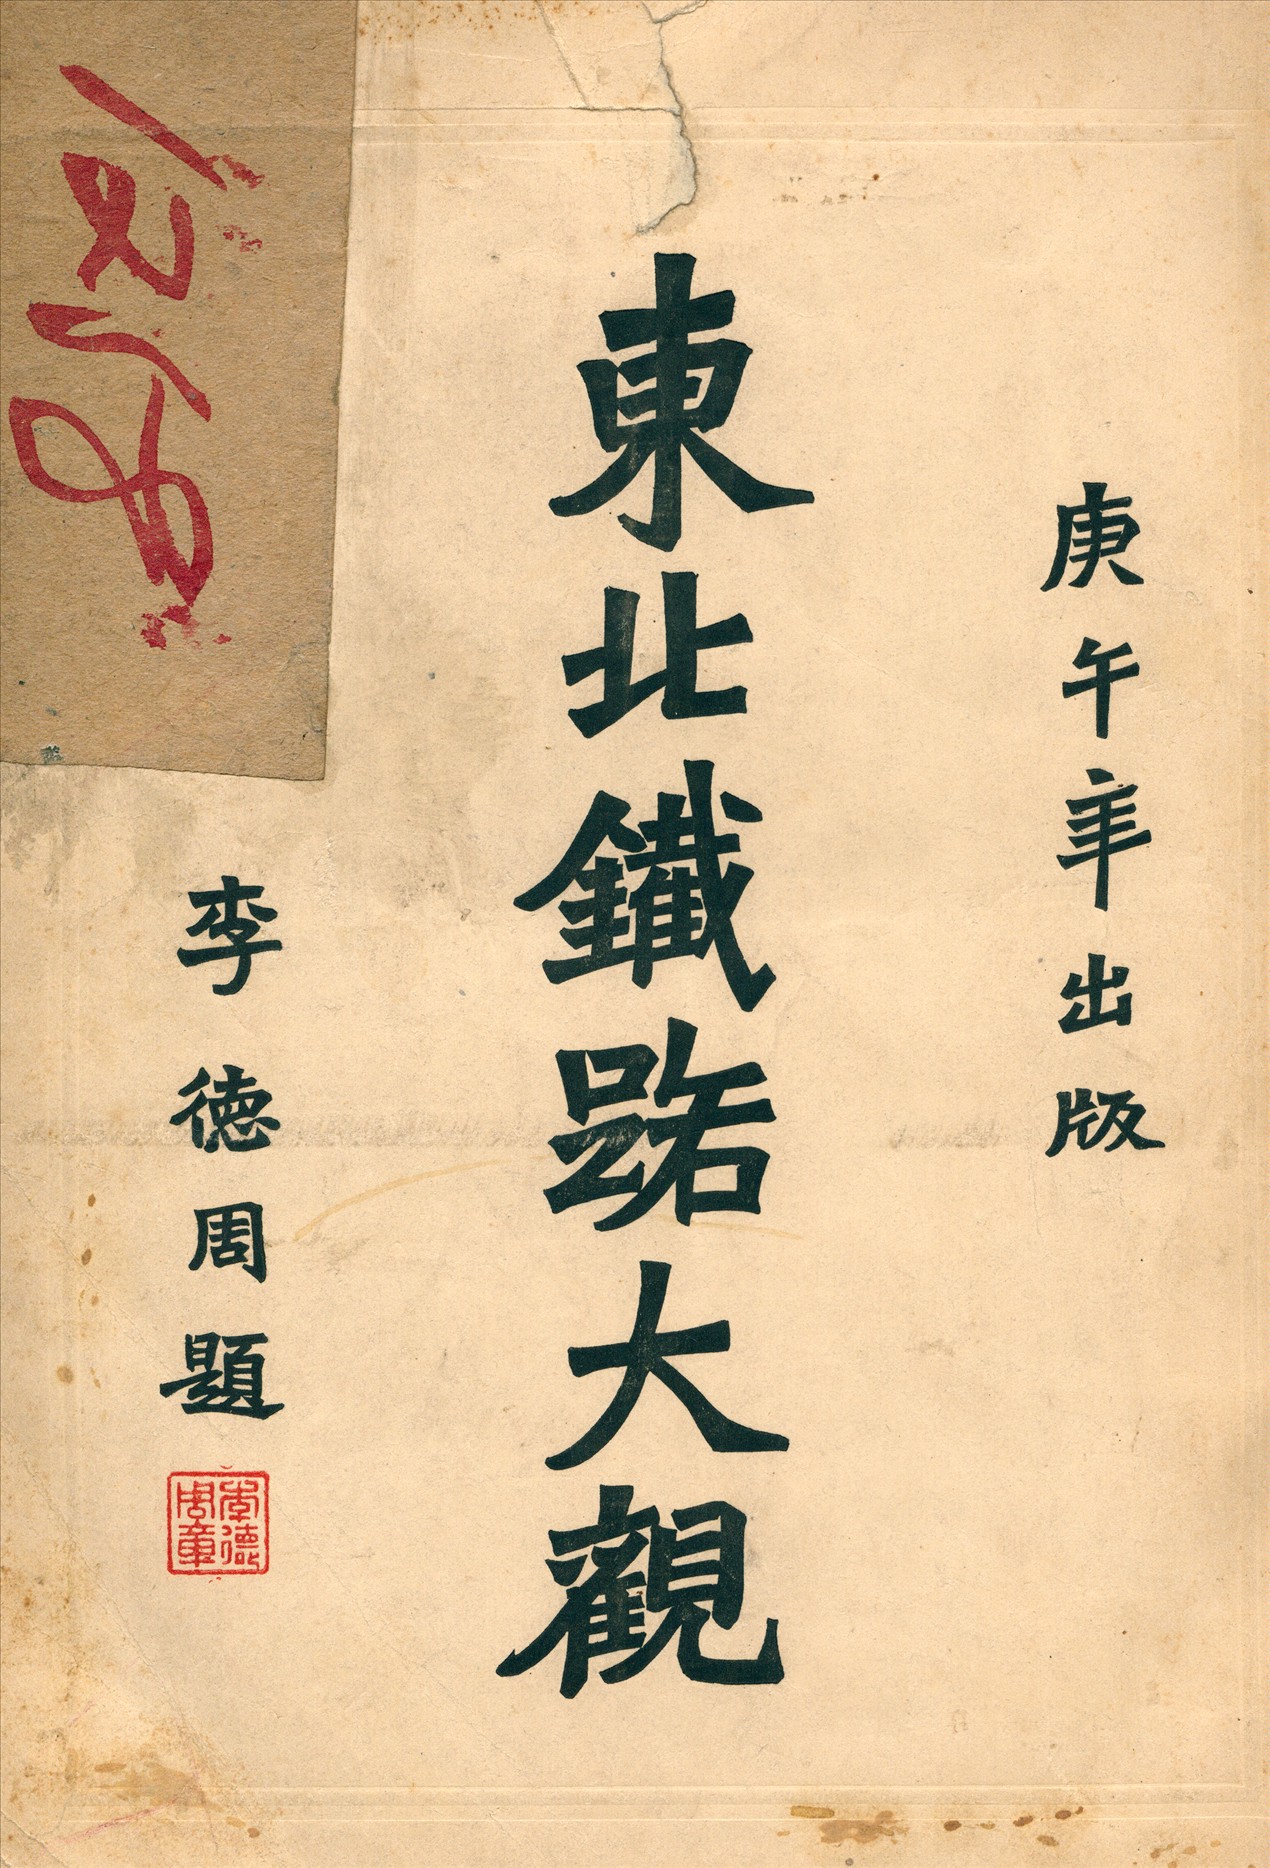 庚午年出版
東北鐵路大觀
李德周題
李德周章